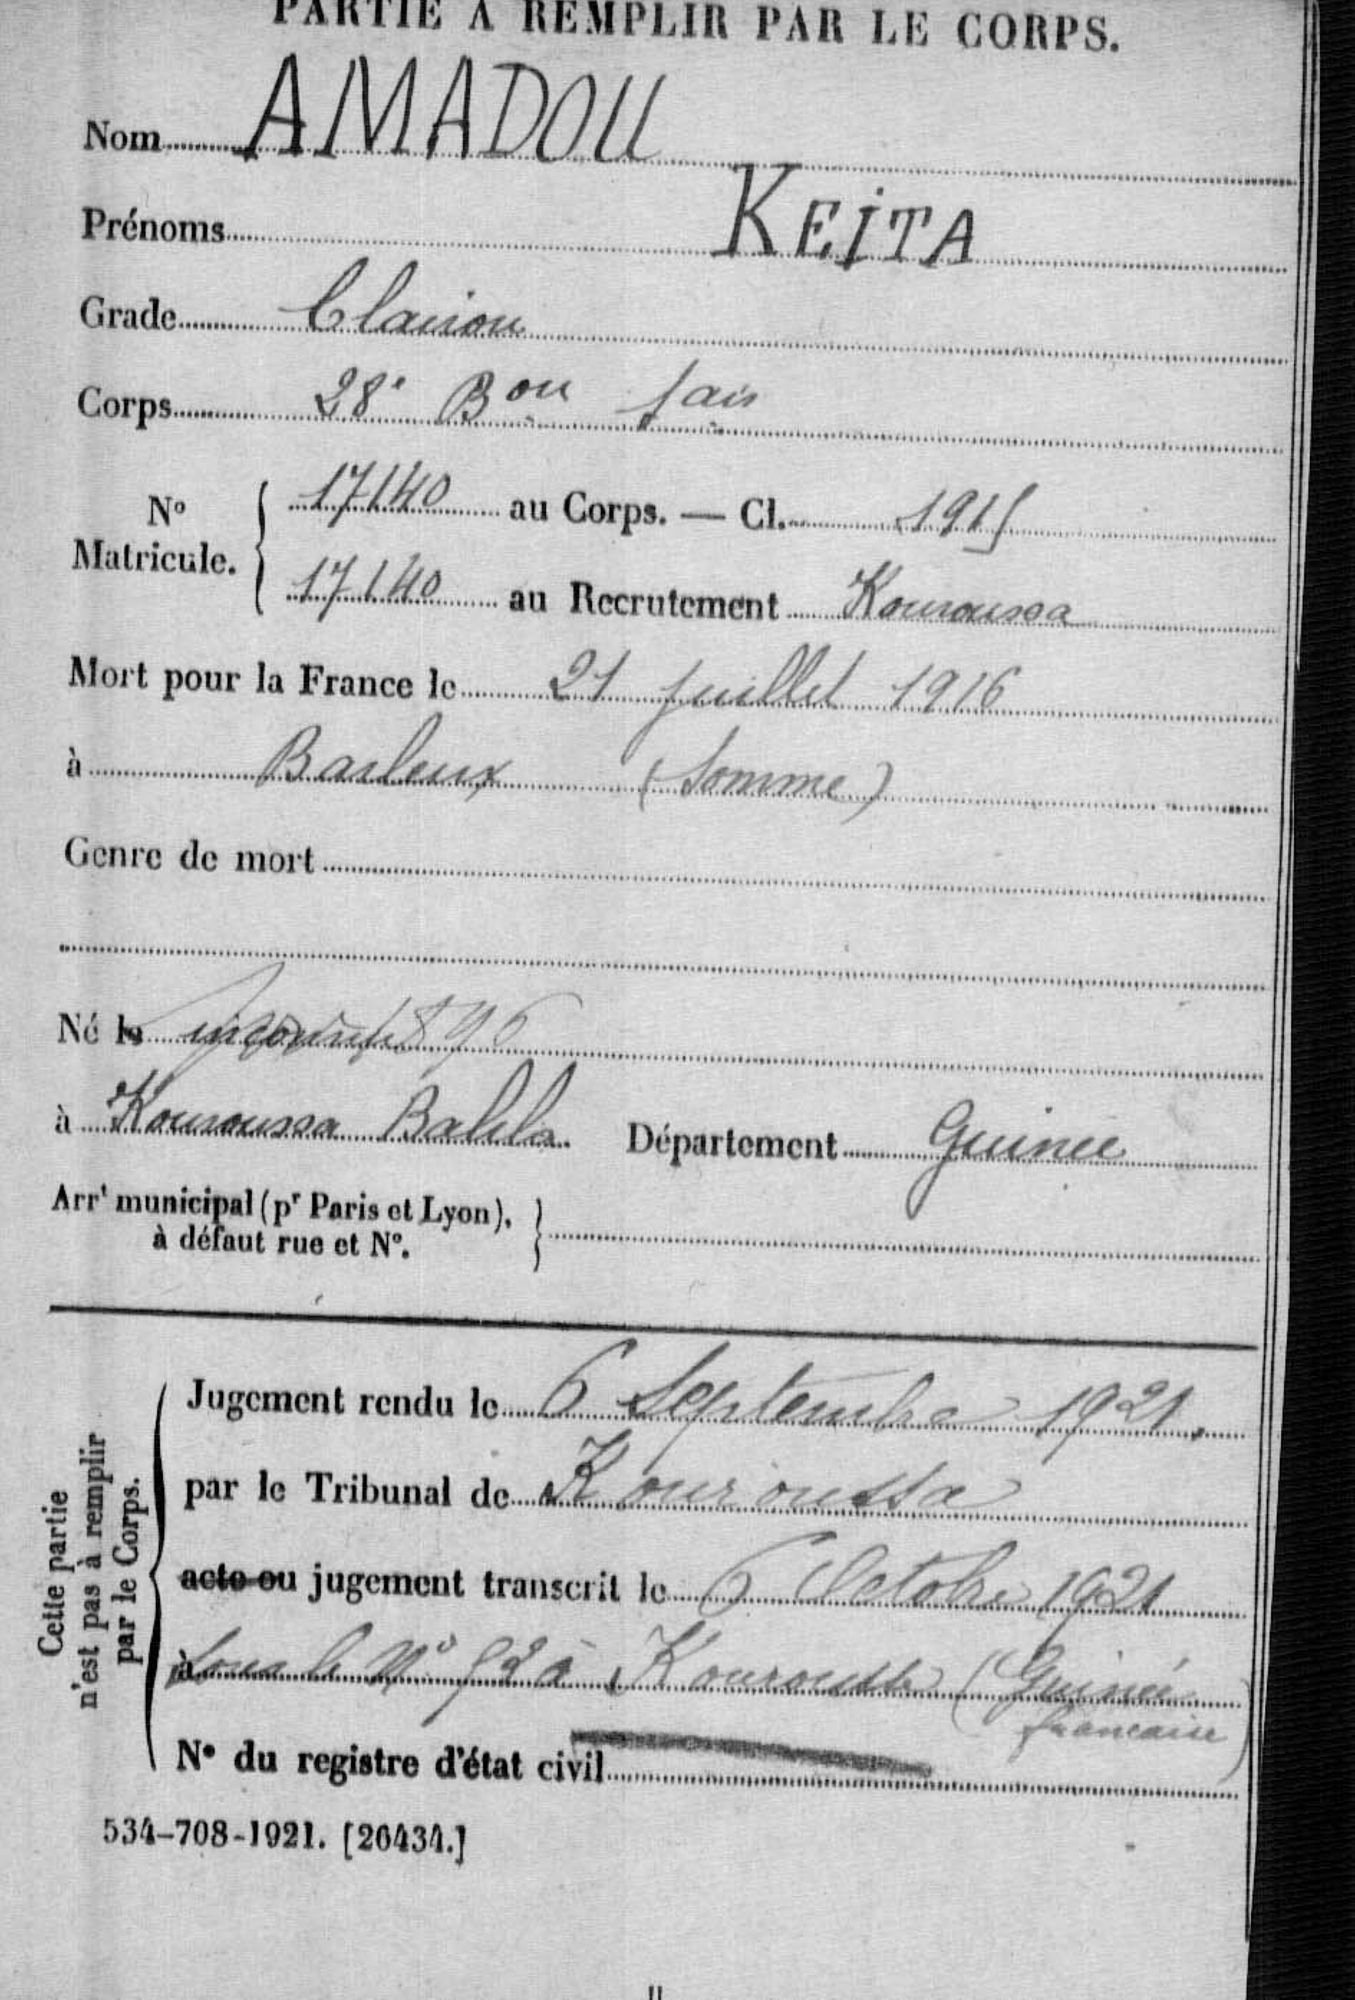 PARTIE À REMPLIR PAR LE CORPS.
Nom AMADOU
Prénoms KEITA
Grade Clairon
Corps 28e Bon
N° Matricule. 17140 au Corps. — Cl. 1915
17140 au Recrutement Kouroussa
Mort pour la France le 21 juillet 1916
à Barleux (Somme)
Genre de mort
Né le 1896
à Kouroussa Département Guinée
Arrt municipal (pr Paris et Lyon),
à défaut rue et N°.
Cette partie
n'est pas à remplir
par le Corps.
Jugement rendu le 6 Septembre 1921.
par le Tribunal de Kouroussa
acte ou jugement transcrit le 6 Octobre 1921
à sous le N° 52 à Kouroussa (Guinée
française)
N° du registre d'état civil
534-708-1921. [26434.]